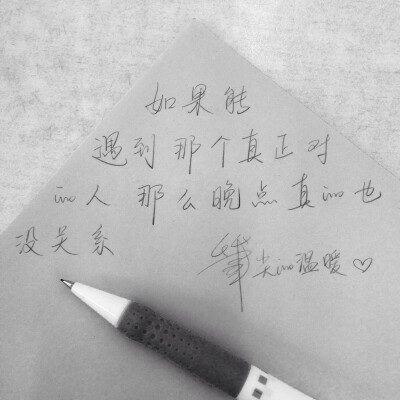 如果能
遇到那个真正对
的人 那么晚点真的也
没关系
笔尖的温暖♡